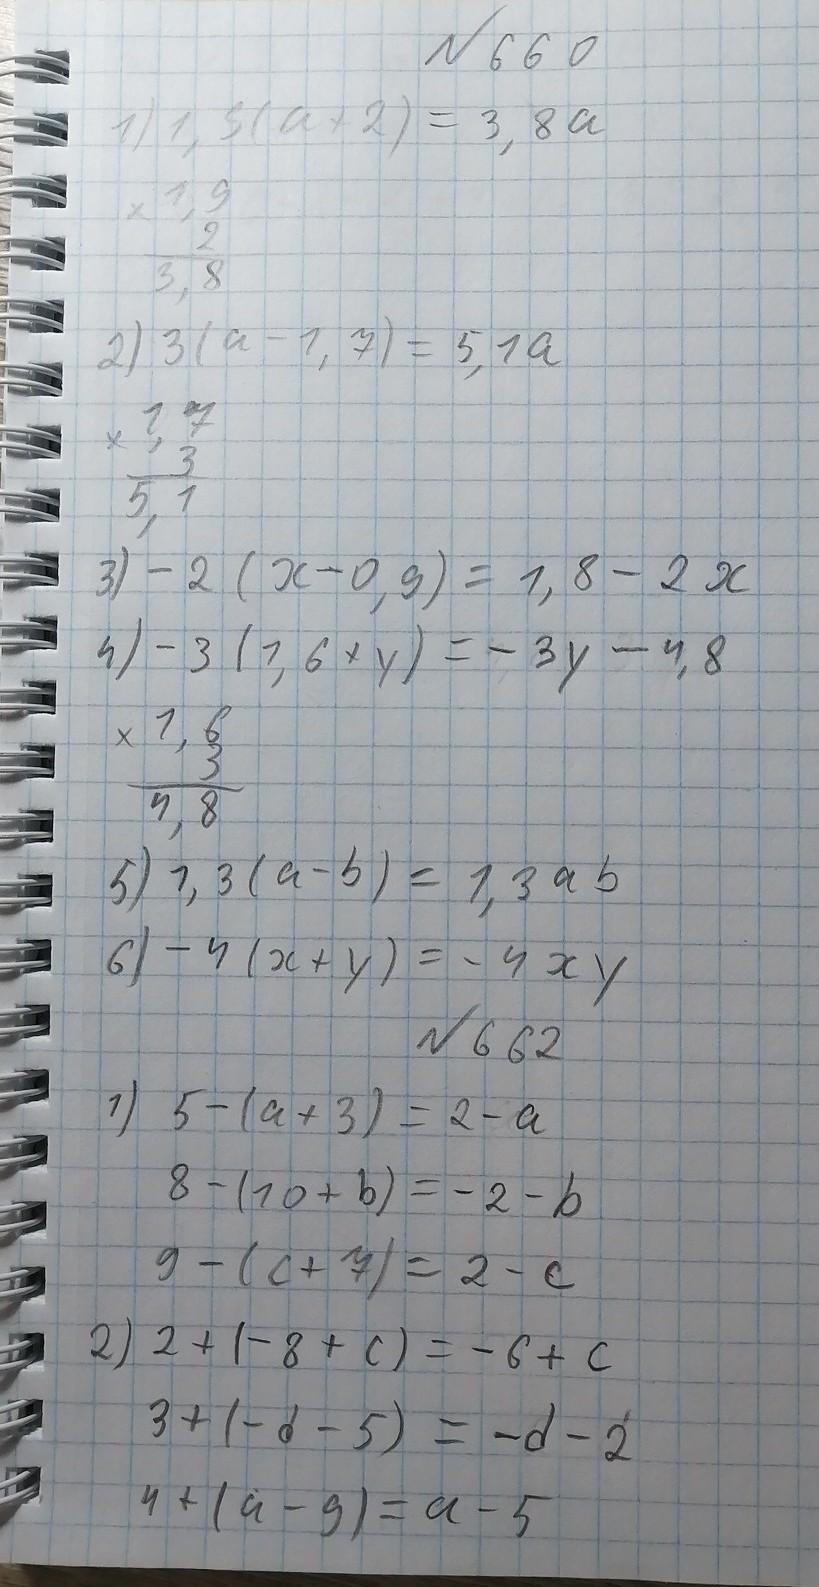 № 660
1) 1,9(a+2) = 3,8a
× 1,9
2
3,8
2) 3(a-1,7) = 5,1a
× 1,7
3
5,1
3) -2(x-0,9) = 1,8-2x
4) -3(1,6+y) = -3y-4,8
× 1,6
3
4,8
5) 1,3(a-b) = 1,3ab
6) -4(x+y) = -4xy
№ 662
1) 5-(a+3) = 2-a
8-(10+b) = -2-b
9-(c+7) = 2-c
2) 2+(-8+c) = -6+c
3+(-d-5) = -d-2
4+(a-9) = a-5